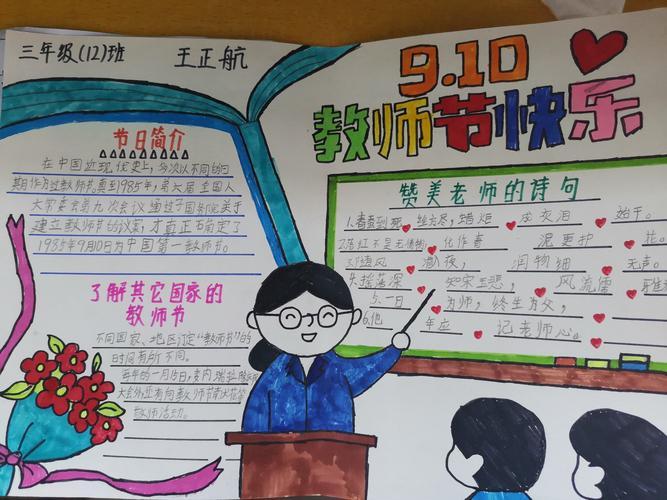 三年级(12)班 王正航
9.10
教师节快乐
节日简介
在中国近现代史上,多次以不同的日
期作为过教师节。直到1985年,第六届全国人
大常委会第九次会议通过了国务院关于
建立教师节的议案,才真正确定了
1985年9月10日为中国第一教师节。
了解其它国家的
教师节
不同国家、地区订定“教师节”的
时间有所不同。
每年的一月15日,委内瑞拉
教师活动。
赞美老师的诗句
1.春蚕到死 丝方尽,蜡炬 成灰泪 始干。
2.落红不是无情物 化作春 泥更护 花。
潜夜, 润物细 无声。
摇落深 知宋玉悲, 风流儒雅
5.一日 为师,终生为父,
6.他 年应 记老师心。